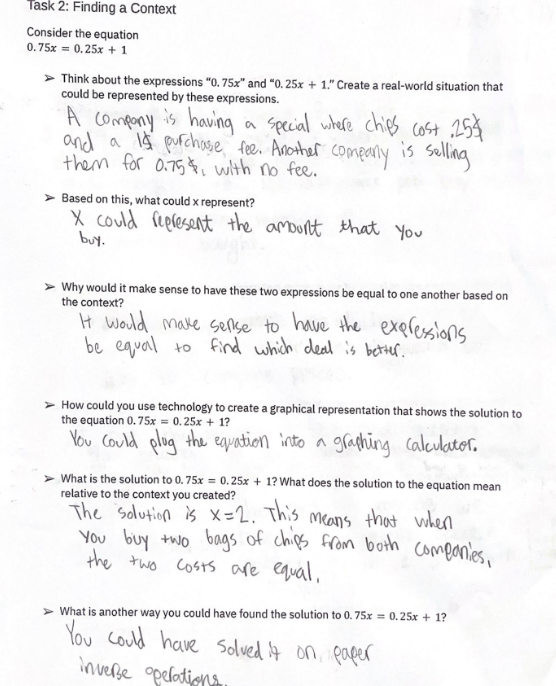 Task 2: Finding a Context
Consider the equation
0.75x = 0.25x + 1
➢ Think about the expressions "0.75x" and "0.25x + 1." Create a real-world situation that
could be represented by these expressions.
A company is having a special where chips cost .25$
and a 1$ purchase fee. Another company is selling
them for 0.75$, with no fee.
➢ Based on this, what could x represent?
X could represent the amount that you
buy.
➢ Why would it make sense to have these two expressions be equal to one another based on
the context?
It would make sense to have the expressions
be equal to find which deal is better.
➢ How could you use technology to create a graphical representation that shows the solution to
the equation 0.75x = 0.25x + 1?
You could plug the equation into a graphing calculator.
➢ What is the solution to 0.75x = 0.25x + 1? What does the solution to the equation mean
relative to the context you created?
The solution is x=2. This means that when
you buy two bags of chips from both companies,
the two costs are equal.
➢ What is another way you could have found the solution to 0.75x = 0.25x + 1?
You could have solved it on paper
inverse operations.